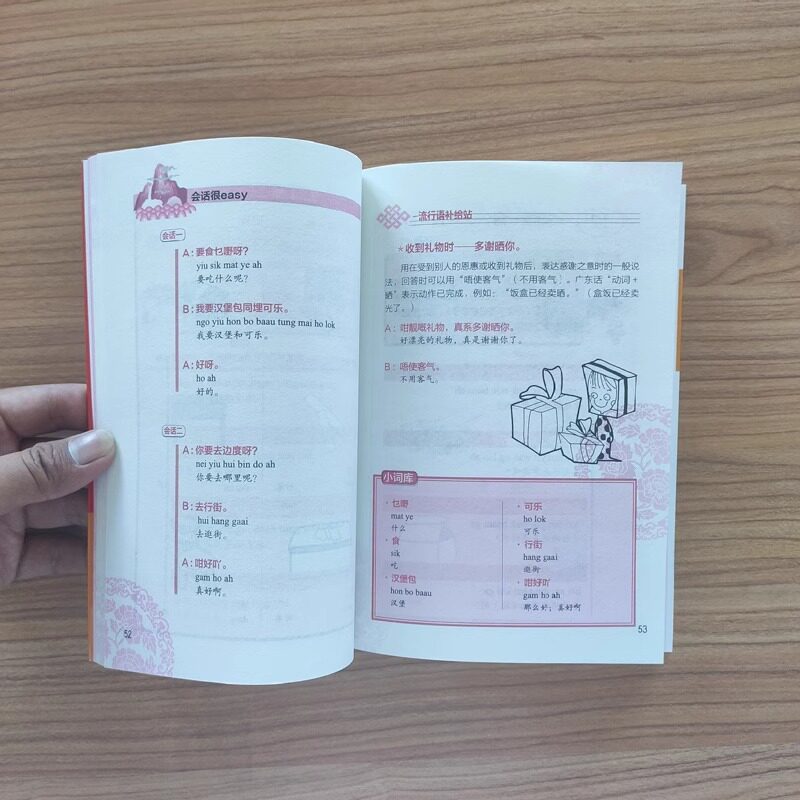 会话很easy
会话一
A：要食乜嘢呀？
yiu sik mat ye ah
要吃什么呢？
B：我要汉堡包同埋可乐。
ngo yiu hon bo baau tung mai ho lok
我要汉堡和可乐。
A：好呀。
ho ah
好的。
会话二
A：你要去边度呀？
nei yiu hui bin do ah
你要去哪里呢？
B：去行街。
hui hang gaai
去逛街。
A：咁好吖。
gam ho ah
真好啊。
52
流行语补给站
★收到礼物时——多谢晒你。
用在受到别人的恩惠或收到礼物后，表达感谢之意时的一般说
法，回答时可以用“唔使客气”（不用客气）。广东话“动词+
晒”表示动作已完成，例如：“饭盒已经卖晒。”（盒饭已经卖
光了。）
A：咁靓嘅礼物，真系多谢晒你。
好漂亮的礼物，真是谢谢你了。
B：唔使客气。
不用客气。
小词库
· 乜嘢
mat ye
什么
· 食
sik
吃
· 汉堡包
hon bo baau
汉堡
· 可乐
ho lok
可乐
· 行街
hang gaai
逛街
· 咁好吖
gam ho ah
那么好；真好啊
53